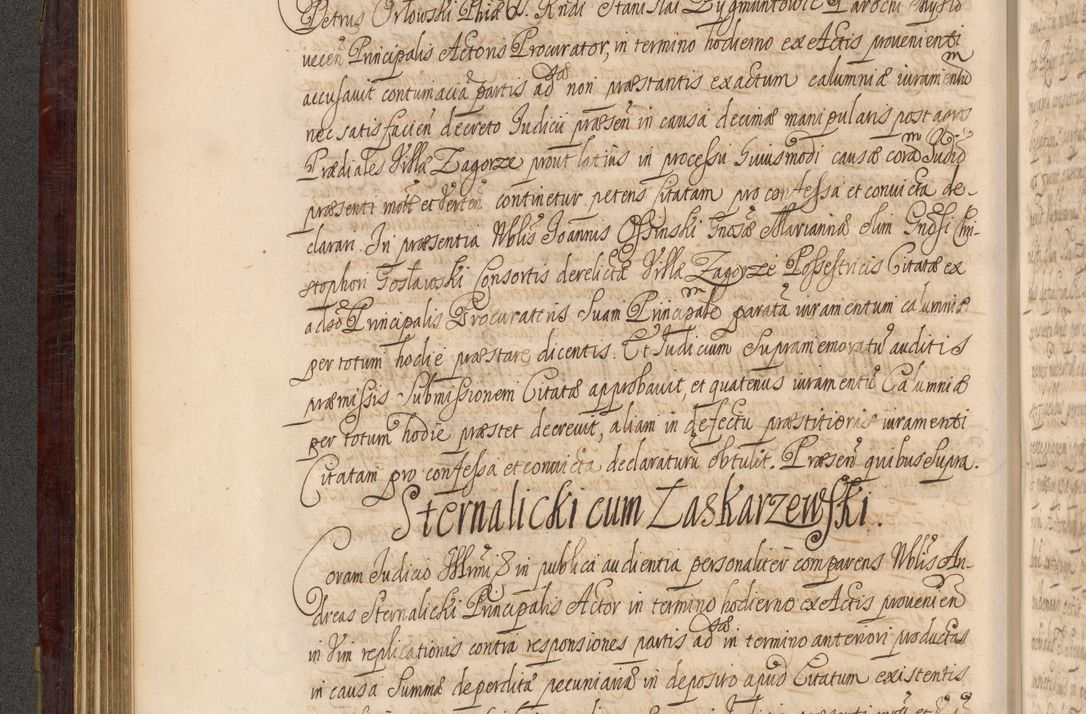 Petrus Orłowski Phiæ D. Rndi Stanislai Zygmuntowic Parochi
vecen Principalis Actoris Procurator, in termino hodierno ex Actis provenienti
accusavit contumaciã partis adsæ non præstantis exactum calumniæ iuramentũ
nec satisfacien decreto Judicii præsen in causa decimæ manipularis post agros
Prædiales Villæ Zagorze prout latius in processu huiusmodi causæ corã Judio
præsenti mott et verten continetur petens Citatam pro confessa et convicta de-
clarari. In præsentia Nblis Joannis Ossinski Gnosæ Mariannæ olim Gnosi Chri-
stophori Gosławski Consortis derelictæ Villæ Zagorze Possestricis Citatæ ex
adso Principalis Procuratoris Suam Principalẽ paratã iuramentum calumniæ
per totum hodie præstare dicentis. Et Judicium Supramemoratũ auditis
præmissis Submissionem Citatæ approbavit, et quatenus iuramentũ Calumniæ
per totum hodie præstet decrevit, aliam in defectu præstitionis iuramenti
Citatam pro confessa et convicta declaraturũ obtulit. Præsen quibus supra.
Sternalicki cum Zaskarzewski.
Coram Judicio Illrmi & in publica audientia personaliter comparens Nblis An-
dreas Sternalicki Principalis Actor in termino hodierno ex Actis provenien
in Vim replicationis contra responsiones partis adsæ in termino anteriori productas
in causa Summæ deperditæ pecuniariæ in deposito apud Citatum existentis